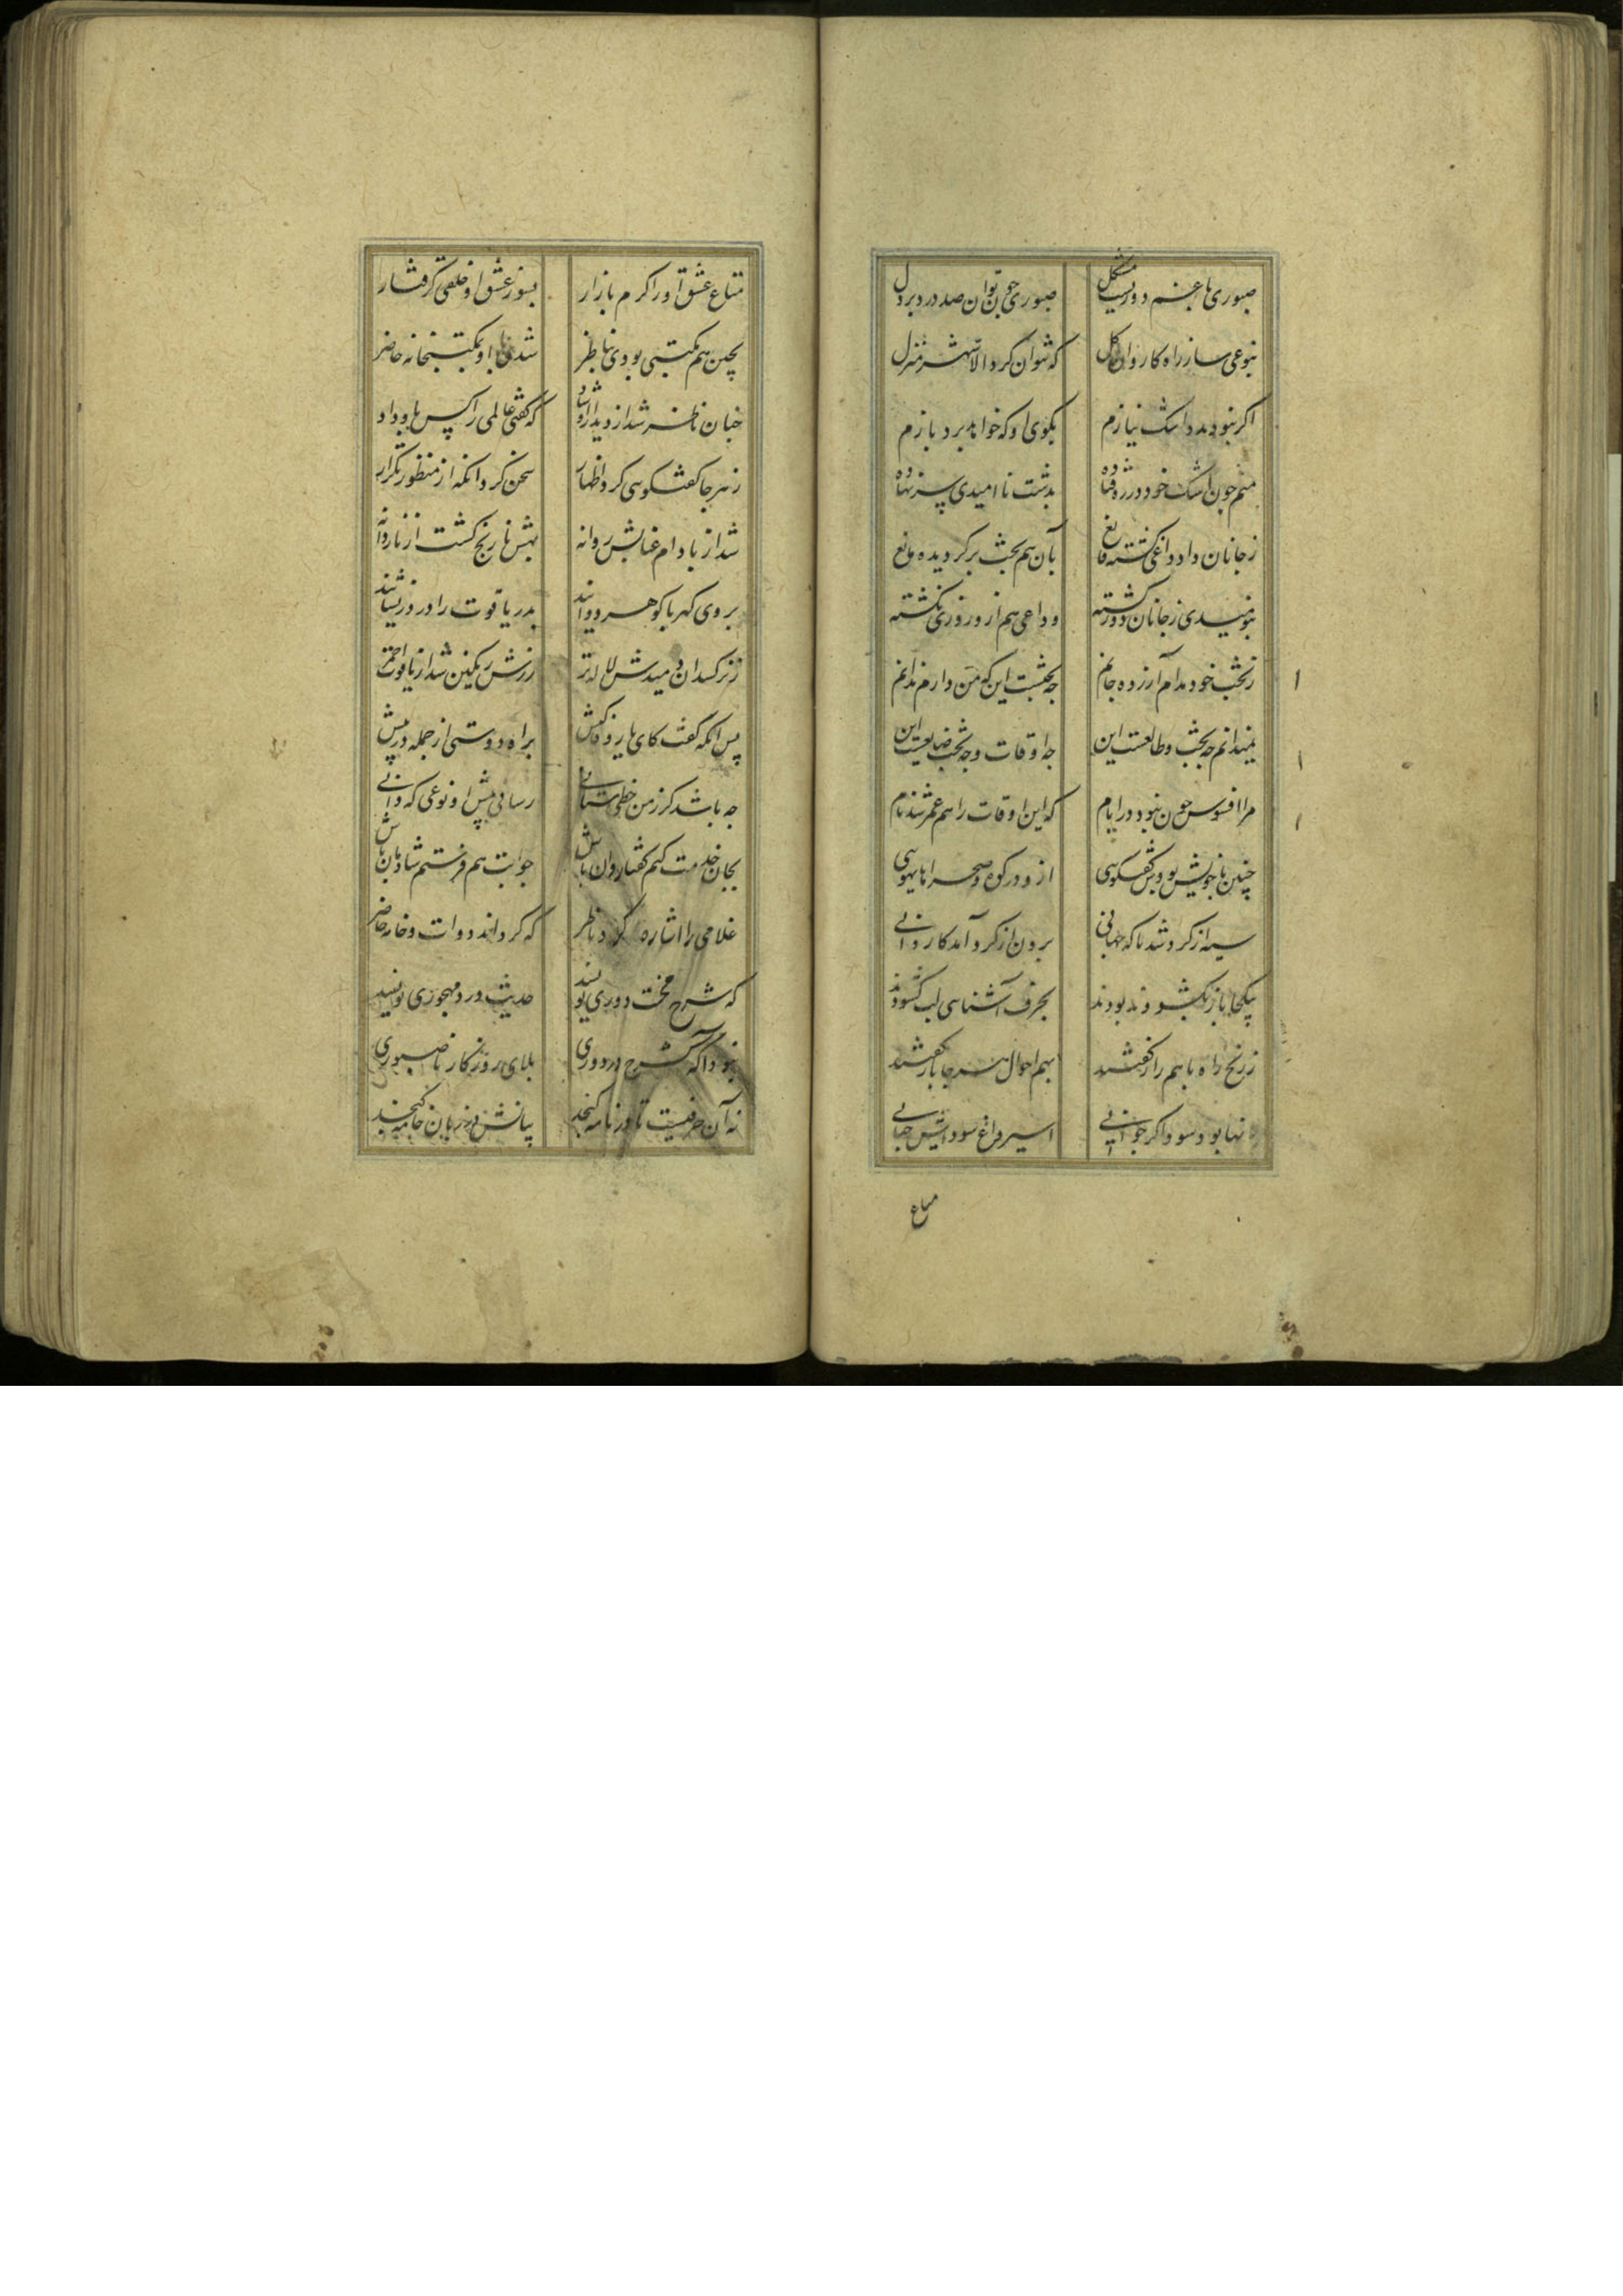 صبوری با غم دوریست مشکل صبوری چون توان صد درد بر دل
بنوعی ساز راه کاروان کل که نتوان کرد الا شهر منزل
اکر نبود مدد اشک نیازم بکوی او که خواهد برد بازم
منم چون اشک خود در ره فتاده بدشت نا امیدی سر نهاده
ز جانان داد داغی کشته قانع بآن هم بخت بر کردیده مانع
بنومیدی ز جانان دور کشته وداعی هم از و روزی نکشته
ز بخت خود مدام آزرده جانم چه بختست این که من دارم ندانم
نمیدانم چه بخت و طالعست این چه اوقات و چه بخت ضایعست این
مرا افسوس چون نبود در ایام که این اوقات را هم عمر شد نام
چنین با خویش بودش کفتکویی ازو در کوه و صحرا های هویی
سیه از کرد شد ناکه جهانی برون از کرد آمد کاروانی
بیکجا باز بکشودند بودند بحرف آشنایی لب کشودند
ز رنج راه با هم راز کفتند بهم احوال هر جا باز کفتند
در آنها بود سوداکر جوانی اسیر داغ سودایش جهانی
متاع
متاع عشق او را کرم بازار بسوز عشق او خلقی کرفتار
بچین هم مکتبی بودی بناظر شدی با او بمکتبخانه حاضر
چنان ناظر شد از دیدار او شاد که کفتی عالمی را کس باو داد
ز هر جا کفتکویی کرد اظهار سخن کرد انکه از منظور تکرار
شد از بادام عنابش روانه بهش نارنج کشت از ناردانه
بروی کهربا کوهر دوانید بدر یاقوت را در زر نشانید
ز نرکسدان دمیدش لاله تر زرش رنکین شد از یاقوت احمر
پس انکه کفت کای یار وفا کیش براه دوستی از جمله در پیش
چه باشد کر ز من خطی ستانی رسانی پیش او نوعی که دانی
بجان خدمت کنم کفتا روان باش جوابت هم فرستم شادمان باش
غلامی را اشاره کرد ناظر که کرداند دوات و خامه حاضر
که شرح محنت دوری نویسد حدیث درد مهجوری نویسد
نبود آکه که شرح درد دوری بلای روزکار ناصبوری
نه آن حرفیست تا در نامه کنجد بیانش در زبان خامه کنجد